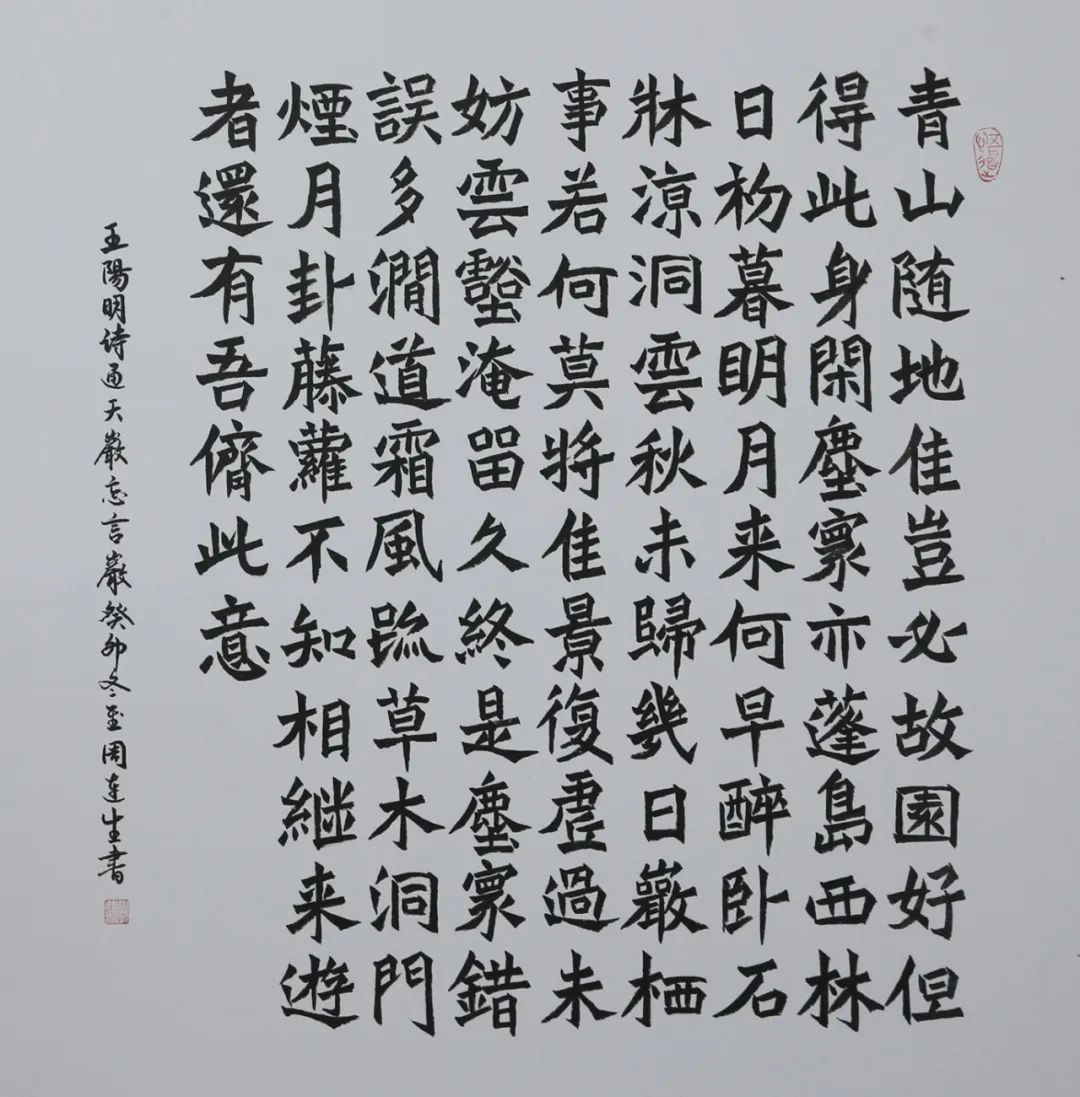 青山随地佳豈必故園好但
得此身閑塵寰亦蓬島西林
日初暮明月来何早醉卧石
牀凉洞雲秋未歸幾日巖栖
事若何莫将佳景復虚過未
妨雲壑淹留久終是塵寰錯
誤多澗道霜風疏草木洞門
煙月卦藤蘿不知相継来遊
者還有吾儕此意
王陽明诗通天巖忘言巖癸卯冬至周連生書